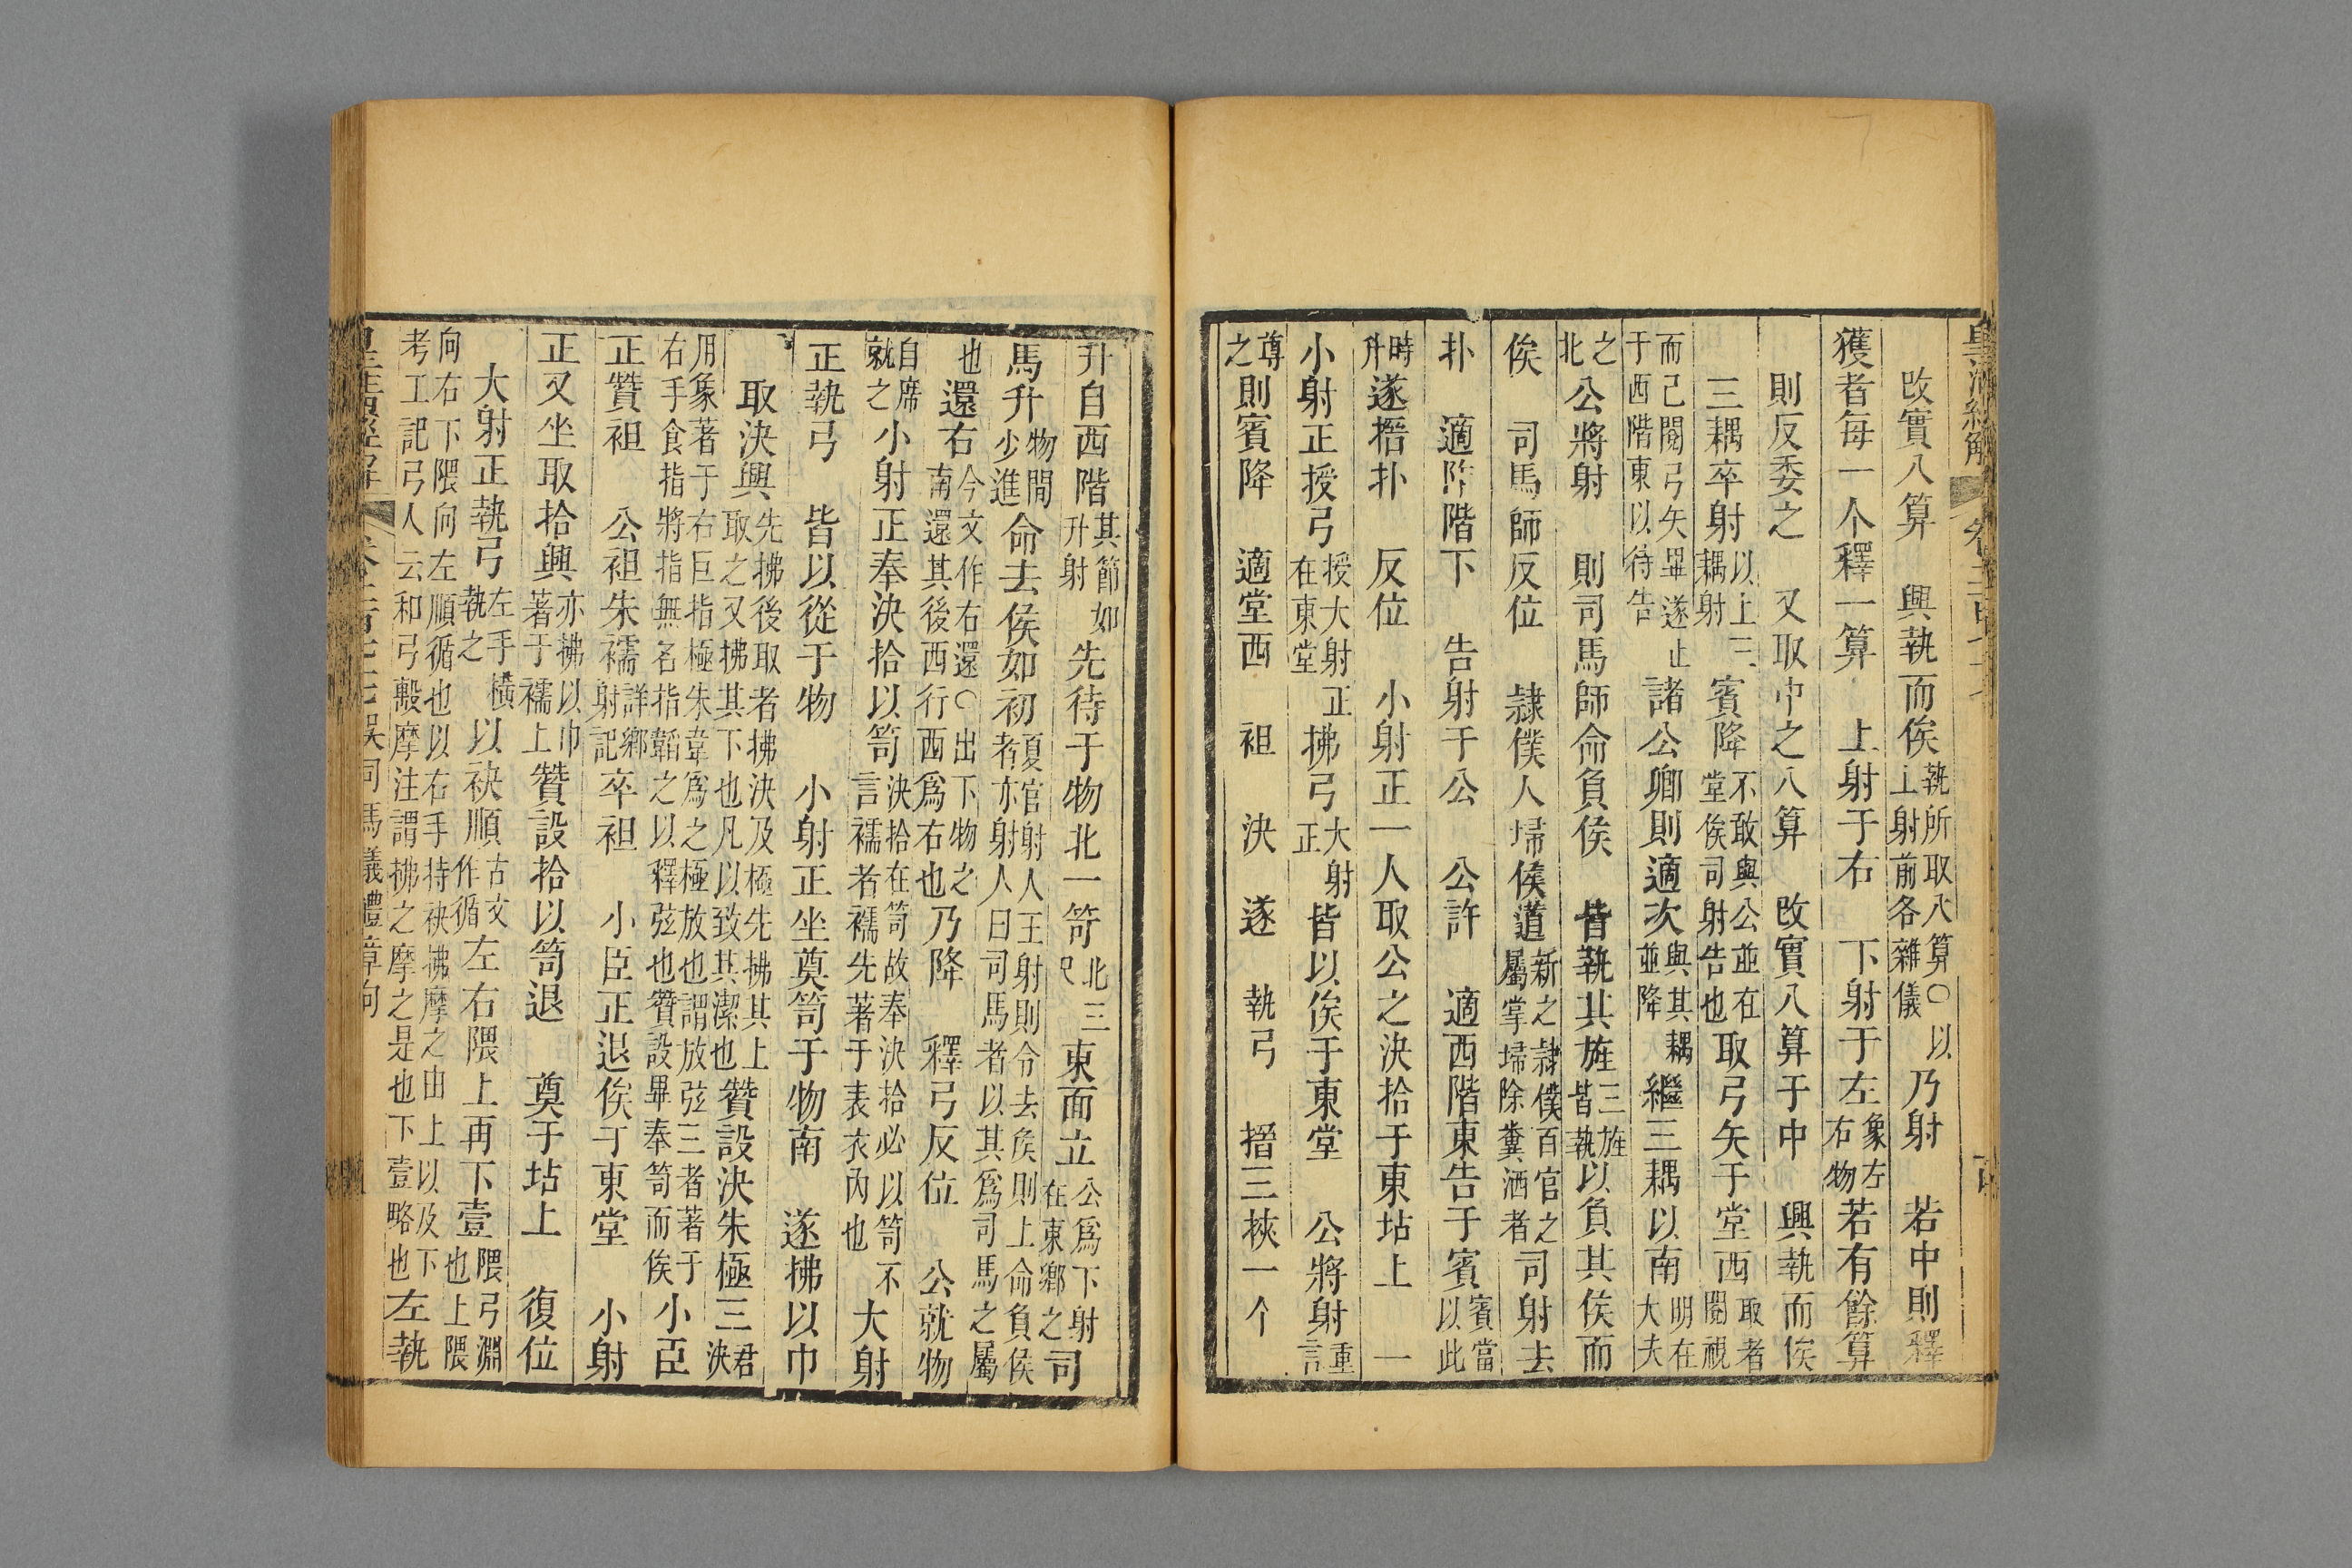 皇清經解
改實八算　興執而俟執所取八算○以上射前各雜儀乃射　若中則釋
獲者每一个釋一算　上射于右　下射于左象左右物若有餘算
則反委之　又取中之八算　改實八算于中　興執而俟
三耦卒射以上三耦射賓降不敢與公並在堂俟司射告也取弓矢于堂西取者閱視
而已閱弓矢畢遂止于西階東以待告諸公卿則適次與其耦並降繼三耦以南明在大夫
之北公將射　則司馬師命負侯　皆執其旌三旌皆執以負其侯而
俟　司馬師反位　隸僕人埽侯道新之隸僕百官之屬掌埽除糞洒者司射去
扑　適阼階下　告射于公　公許　適西階東告于賓賓當以此
時升遂搢扑　反位　小射正一人取公之決拾于東坫上　一
小射正授弓授大射正在東堂拂弓大射正皆以俟于東堂　公將射重言
尊之則賓降　適堂西　袒　決　遂　執弓　搢三挾一个
升自西階其節如升射先待于物北一笴北三尺東面立公爲下射在東鄉之司
馬升物閒少進命去侯如初夏官射人王射則令去矦則上命負侯者亦射人曰司馬者以其爲司馬之屬
也還右今文作右還○出下物之南還其後西行西爲右也乃降　釋弓反位　公就物
自席就之小射正奉決拾以笥決拾在笥故奉決拾必以笥不言襦者襦先著于表衣內也大射
正執弓　皆以從于物　小射正坐奠笥于物南　遂拂以巾
取決興先拂後取者拂決及極先拂其上取之又拂其下也凡以致其潔也贊設決朱極三君決
用象著于右巨指極朱韋爲之極放也謂放弦三者著于右手食指將指無名指韜之以釋弦也贊設畢奉笥而俟小臣
正贊袒　公袒朱襦詳鄉射記卒袒　小臣正退俟于東堂　小射
正又坐取拾興亦拂以巾著于襦上贊設拾以笥退　奠于坫上　復位
大射正執弓左手橫執之以袂順古文作循左右隈上再下壹隈弓淵也上隈
向右下隈向左順循也以右手持袂拂摩之由上以及下考工記弓人云和弓毄摩注謂拂之摩之是也下壹略也左執